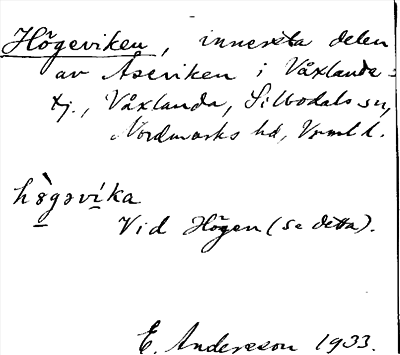 Högeviken, innersta delen
av Åseviken i Våxlanda-
tj., Våxlanda, Silbodals sn,
Nordmarks hd, Vrml. l.
högəvíka
Vid Högen (se detta).
E. Andersson 1933.